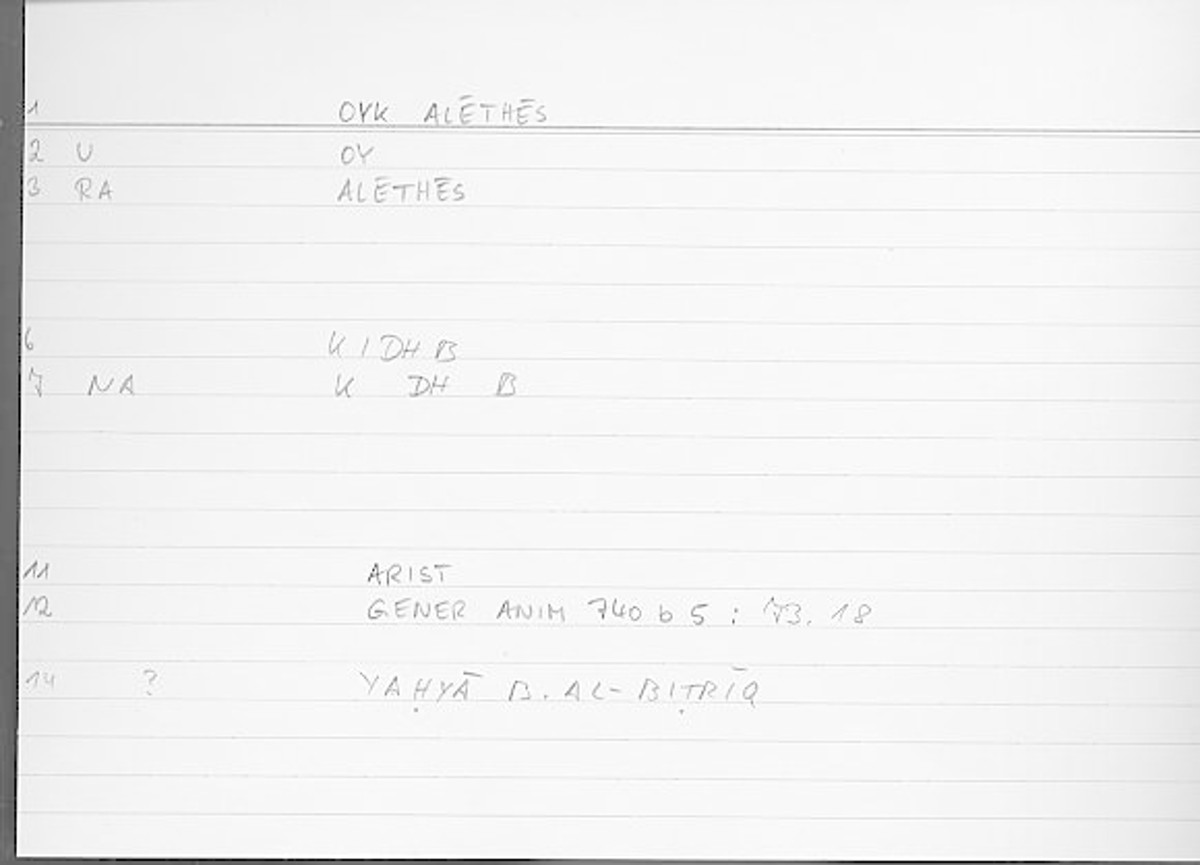 1 OYK ALĒTHĒS
2 U OY
3 RA ALĒTHĒS
6 KIDHB
7 NA K DH B
11 ARIST
12 GENER ANIM 740 b 5 : 73. 18
14 ? YAḤYĀ B. AL-BIṬRĪQ